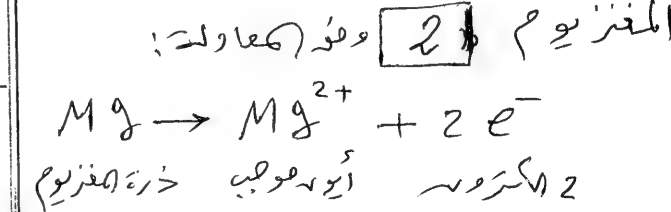 المغنزيوم 2 وفق المعادلة:
Mg → Mg²⁺ + 2 e⁻
ذرة المغنزيوم أيون موجب 2 الكترون